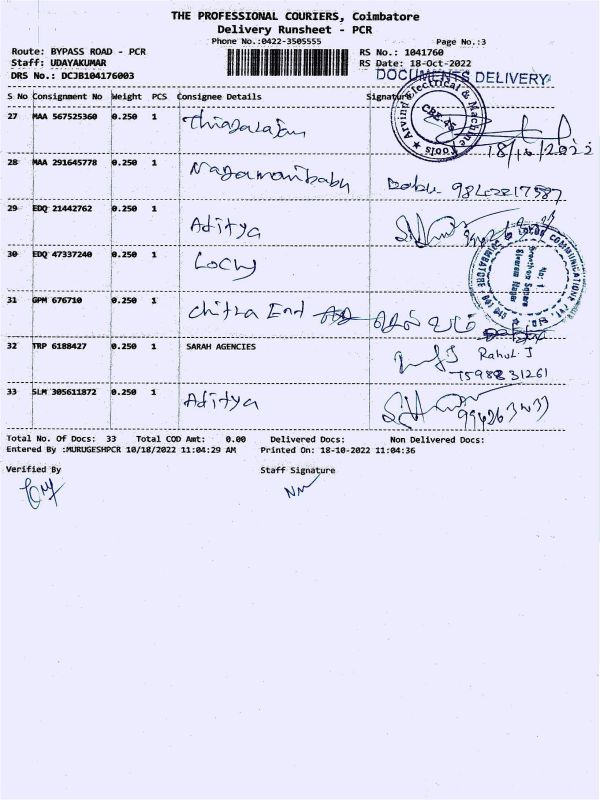 THE PROFESSIONAL COURIERS, Coimbatore
Delivery Runsheet - PCR
Phone No.:0422-3505555
Page No.:3
Route: BYPASS ROAD - PCR
RS No.: 1041760
Staff: UDAYAKUMAR
RS Date: 18-Oct-2022
DRS No.: DCJB104176003
DOCUMENTS DELIVERY
S No Consignment No Weight PCS Consignee Details Signature
27 MAA 567525360 0.250 1 Thiagalajan
Arvind Electrical & Machine Tools
CBE-45
18/10/2022
28 MAA 291645778 0.250 1 Nagamanibabu Babu 9842217587
29 EDQ 21442762 0.250 1 Aditya
30 EDQ 47337240 0.250 1 Lochy
31 GPM 676710 0.250 1 Chitra End
32 TRP 6188427 0.250 1 SARAH AGENCIES Rahul. J
7598831261
33 SLM 305611872 0.250 1 Aditya
Total No. Of Docs: 33 Total COD Amt: 0.00 Delivered Docs: Non Delivered Docs:
Entered By :MURUGESHPCR 10/18/2022 11:04:29 AM Printed On: 18-10-2022 11:04:36
Verified By Staff Signature